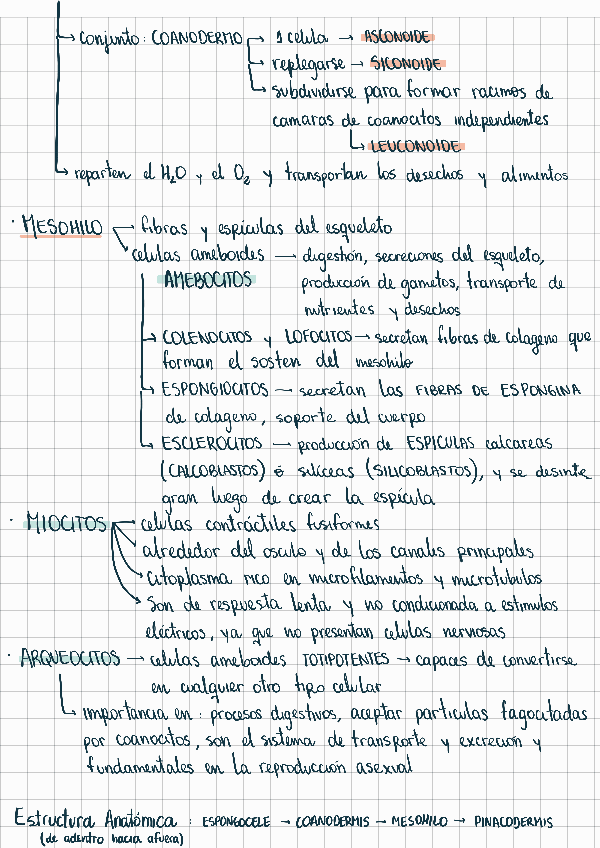 → conjunto: COANODERMO → 1 celula → ASCONOIDE
→ replegarse → SICONOIDE
→ subdividirse para formar racimos de
camaras de coanocitos independientes
→ LEUCONOIDE
→ reparten el H₂O y el O₂ y transportan los desechos y alimentos
· MESOHILO → fibras y espículas del esqueleto
→ celulas ameboides → digestión, secreciones del esqueleto,
AMEBOCITOS producción de gametos, transporte de
nutrientes y desechos
→ COLENOCITOS y LOFOCITOS → secretan fibras de colageno que
forman el sosten del mesohilo
→ ESPONGIOCITOS → secretan las FIBRAS DE ESPONGINA
de colageno, soporte del cuerpo
→ ESCLEROCITOS → producción de ESPICULAS calcareas
(CALCOBLASTOS) ó silíceas (SILICOBLASTOS), y se desinte
gran luego de crear la espícula
· MIOCITOS → celulas contráctiles fusiformes
→ alrededor del osculo y de los canales principales
→ citoplasma rico en microfilamentos y microtubulos
→ Son de respuesta lenta y no condicionada a estimulos
eléctricos, ya que no presentan celulas nerviosas
· ARQUEOCITOS → celulas ameboides TOTIPOTENTES → capaces de convertirse
en cualquier otro tipo celular
→ importancia en: procesos digestivos, aceptar particulas fagocitadas
por coanocitos, son el sistema de transporte y excreción y
fundamentales en la reproduccion asexual
Estructura Anatómica : ESPONGOCELE → COANODERMIS → MESOHILO → PINACODERMIS
(de adentro hacia afuera)